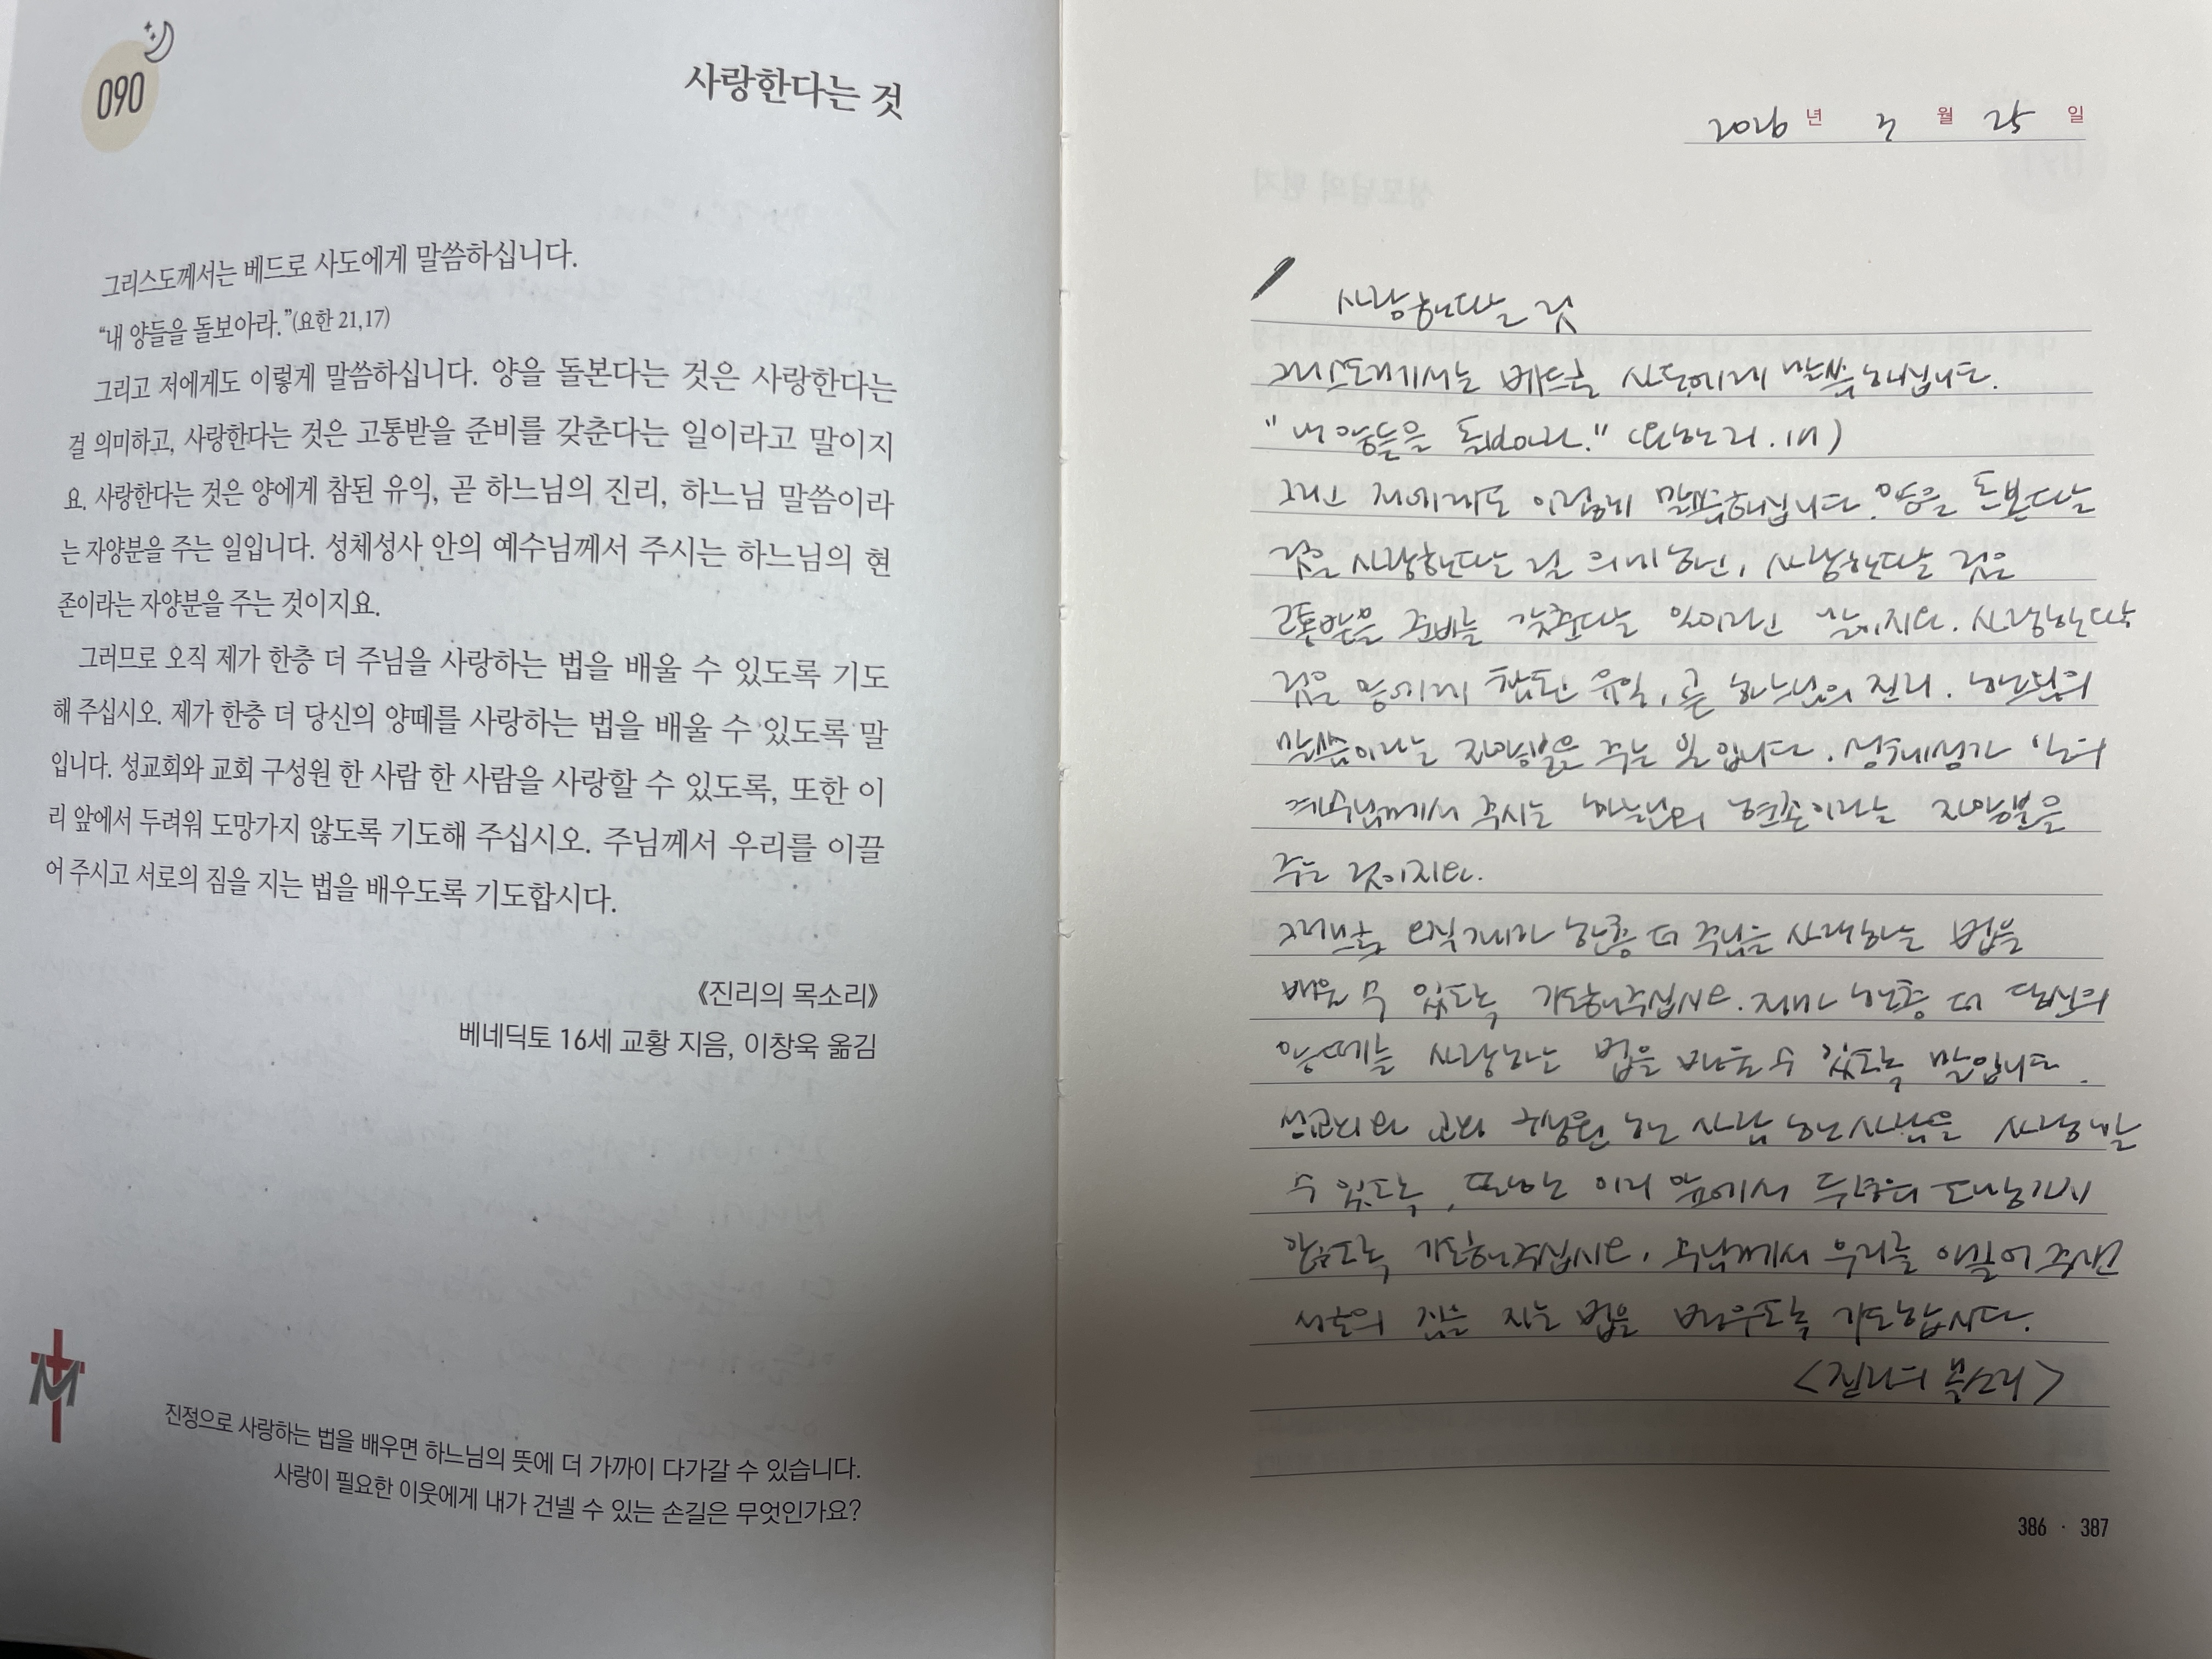 090
사랑한다는 것
그리스도께서는 베드로 사도에게 말씀하십니다.
“내 양들을 돌보아라.”(요한 21,17)
그리고 저에게도 이렇게 말씀하십니다. 양을 돌본다는 것은 사랑한다는
걸 의미하고, 사랑한다는 것은 고통받을 준비를 갖춘다는 일이라고 말이지
요. 사랑한다는 것은 양에게 참된 유익, 곧 하느님의 진리, 하느님 말씀이라
는 자양분을 주는 일입니다. 성체성사 안의 예수님께서 주시는 하느님의 현
존이라는 자양분을 주는 것이지요.
그러므로 오직 제가 한층 더 주님을 사랑하는 법을 배울 수 있도록 기도
해 주십시오. 제가 한층 더 당신의 양떼를 사랑하는 법을 배울 수 있도록 말
입니다. 성교회와 교회 구성원 한 사람 한 사람을 사랑할 수 있도록, 또한 이
리 앞에서 두려워 도망가지 않도록 기도해 주십시오. 주님께서 우리를 이끌
어 주시고 서로의 짐을 지는 법을 배우도록 기도합시다.
《진리의 목소리》
베네딕토 16세 교황 지음, 이창욱 옮김
진정으로 사랑하는 법을 배우면 하느님의 뜻에 더 가까이 다가갈 수 있습니다.
사랑이 필요한 이웃에게 내가 건넬 수 있는 손길은 무엇인가요?
2026 년 월 25 일
사랑한다는 것
그리스도께서는 베드로 사도에게 말씀하십니다.
"내 양들을 돌보아라." (요한 21. 17)
그리고 저에게도 이렇게 말씀하십니다. 양을 돌본다는
것은 사랑한다는 걸 의미하고, 사랑한다는 것은
고통받을 준비를 갖춘다는 일이라고 말이지요. 사랑한다는
것은 양에게 참된 유익, 곧 하느님의 진리. 하느님의
말씀이라는 자양분을 주는 일입니다. 성체성사 안의
예수님께서 주시는 하느님의 현존이라는 자양분을
주는 것이지요.
그러므로 오직 제가 한층 더 주님을 사랑하는 법을
배울 수 있도록 기도해주십시오. 제가 한층 더 당신의
양떼를 사랑하는 법을 배울 수 있도록 말입니다.
성교회와 교회 구성원 한 사람 한 사람을 사랑할
수 있도록, 또한 이리 앞에서 두려워 도망가지
않도록 기도해주십시오. 주님께서 우리를 이끌어 주시고
서로의 짐을 지는 법을 배우도록 기도합시다.
<진리의 목소리>
386 · 387